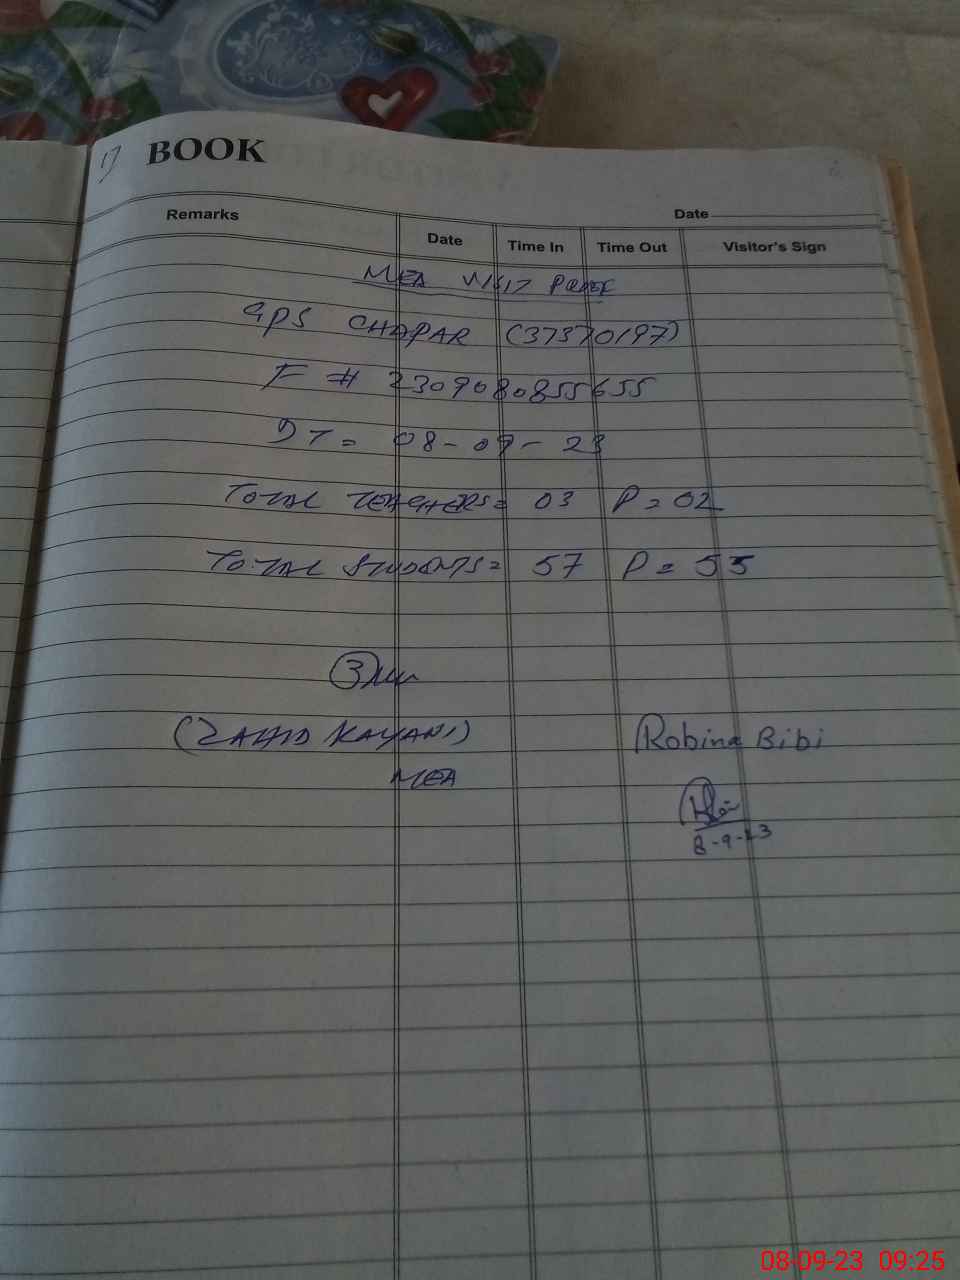 17
BOOK
Date
Remarks
Date
Time In
Time Out
Visitor's Sign
MEA VISIT
GPS CHAPAR (37370197)
F # 2309080855655
DT = 08-09-23
TOTAL TEACHERS = 03 P = 02
TOTAL STUDENTS = 57 P = 55
(ZAHID KAYANI)
MEA
Robina Bibi
8-9-23
08-09-23 09:25